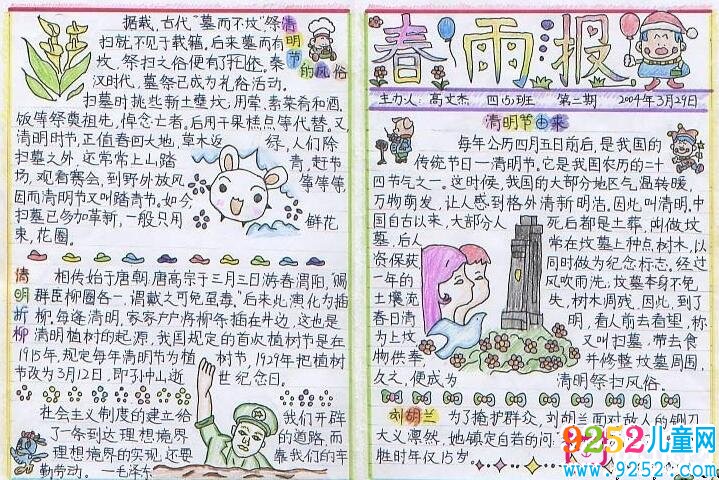 据载,古代“墓而不坟”,祭
扫就不见于载籍,后来墓而有
坟,祭扫之俗便有了托依。秦
汉时代,墓祭已成为礼俗活动。
清明节
的风俗
扫墓时挑些新土壅坟;用荤、素菜肴和酒、
饭等祭奠祖先,悼念亡者,后用干果糕点等代替。又
清明时节,正值春回大地,草木返 绿,人们除
扫墓之外,还常常上山踏 青,赶节
场,观看赛会,到野外放风 筝等等,
因而清明节又叫踏青节。如今,
扫墓已多加革新,一般只用 鲜花
束,花圈。
清明折柳
相传始于唐朝,唐高宗于三月三日游春渭阳,赐
群臣柳圈各一,谓戴之可免虿毒。后来此演化为插
柳。每逢清明,家家户户将柳条插在井边,这也是
清明植树的起源,我国规定的首次植树节是在
1915年,规定每年清明节为植 树节,1929年把植树
节改为3月12日,即孙中山逝 世纪念日。
社会主义制度的建立给 我们开辟
了一条到达理想境界 的道路,而
理想境界的实现,还要 靠我们的辛
勤劳动。 —毛泽东
春雨报
主办人:高文杰 四(5)班 第二期 2004年3月29日
清明节由来
每年公历四月五日前后,是我国的
传统节日—清明节。它是我国农历的二十
四节气之一。这时候,我国的大部分地区气温转暖,
万物萌发,让人感到格外清新明洁,因此叫清明。中
国自古以来,大部分人 死后都是土葬,叫做坟
墓,后人 常在坟墓上种点树木,以
资保获 同时做为纪念标志。经过
一年的 风吹雨洗,坟墓本身不免
土壤充 失,树木凋残,因此,到了
春日清 明,看人前去看望,称
为上坟, 又叫扫墓,带去食
物供奉, 并修整坟墓周围,
久之,便成为 清明祭扫风俗。
刘胡兰
为了掩护群众,刘胡兰面对敌人的铡刀
大义凛然,她镇定自若的问
牲时年仅15岁。
9252儿童网
www.9252.com